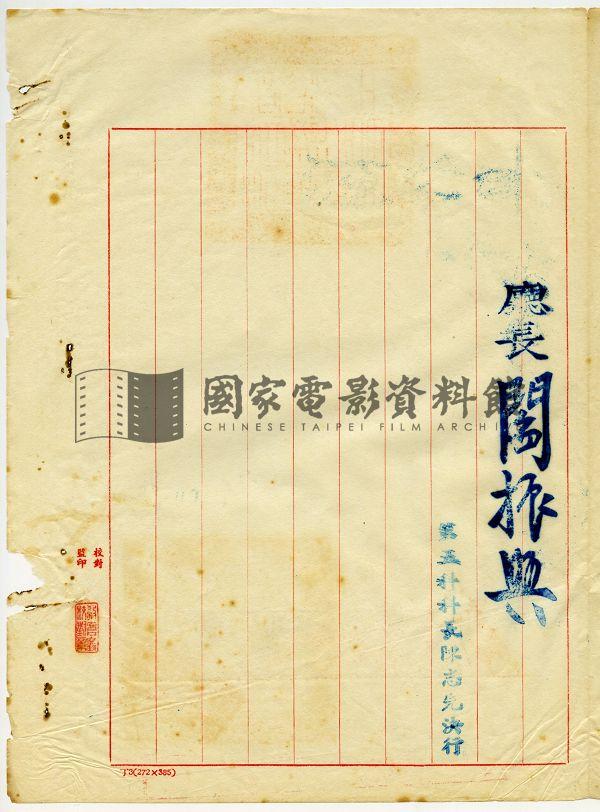 廳長 閻振興
第五科科長陳志先決行
國家電影資料館
CHINESE TAIPEI FILM ARCHI
校對
監印
T3(272×385)